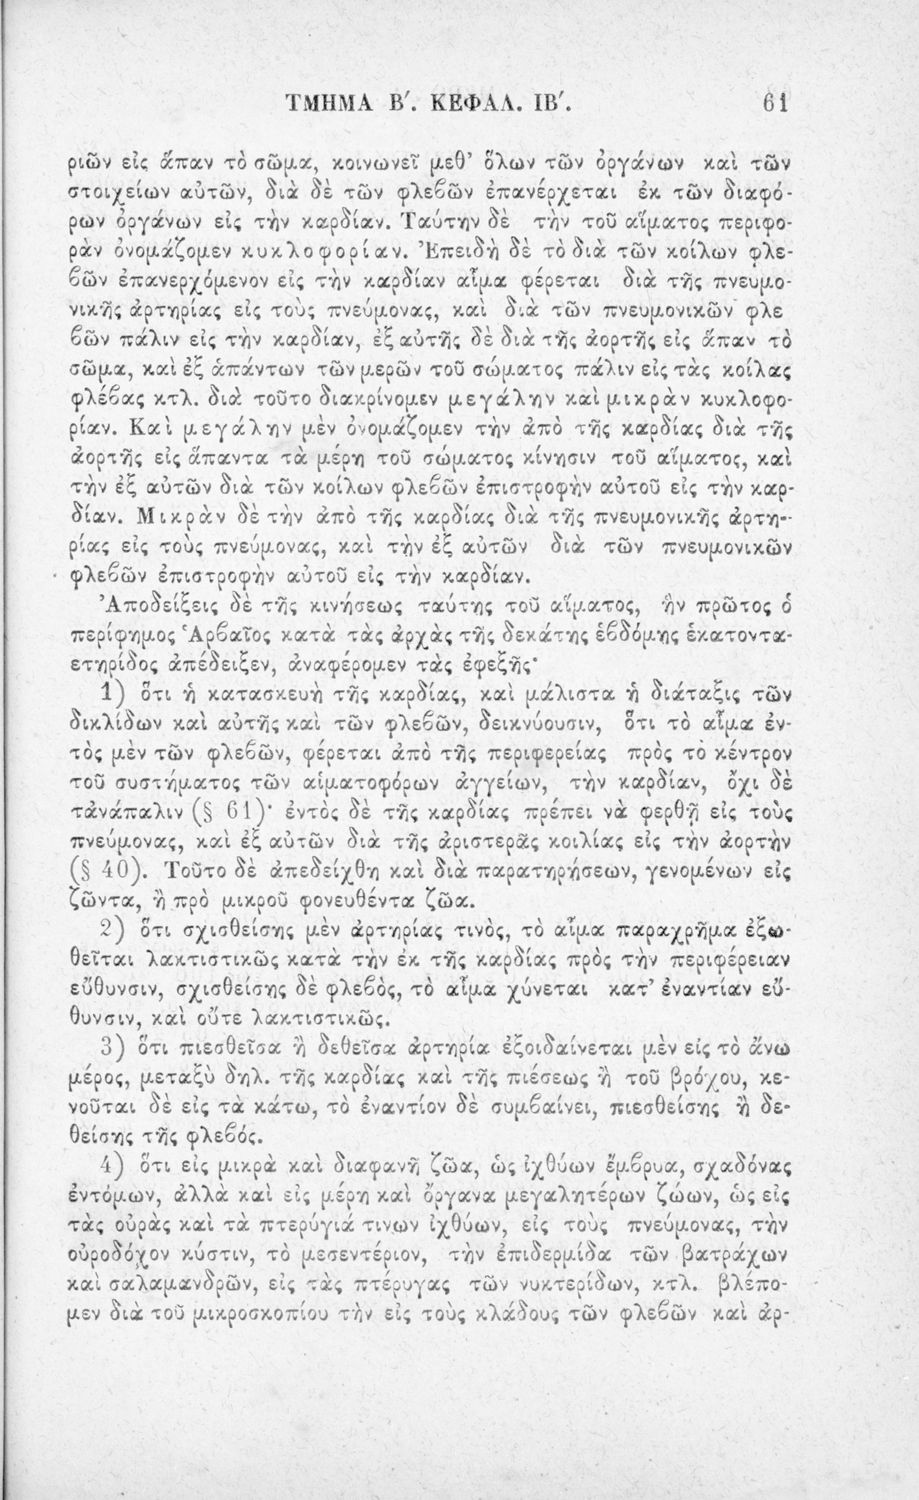 ΤΜΗΜΑ Β΄. ΚΕΦΑΛ. ΙΒ΄. 61
ριῶν εἰς ἅπαν τὸ σῶμα, κοινωνεῖ μεθ’ ὅλων τῶν ὀργάνων καὶ τῶν
στοιχείων αὐτῶν, διὰ δὲ τῶν φλεβῶν ἐπανέρχεται ἐκ τῶν διαφό-
ρων ὀργάνων εἰς τὴν καρδίαν. Ταύτην δὲ τὴν τοῦ αἵματος περιφο-
ρὰν ὀνομάζομεν κυκλοφορίαν. Ἐπειδὴ δὲ τὸ διὰ τῶν κοίλων φλε-
βῶν ἐπανερχόμενον εἰς τὴν καρδίαν αἷμα φέρεται διὰ τῆς πνευμο-
νικῆς ἀρτηρίας εἰς τοὺς πνεύμονας, καὶ διὰ τῶν πνευμονικῶν φλε
βῶν πάλιν εἰς τὴν καρδίαν, ἐξ αὐτῆς δὲ διὰ τῆς ἀορτῆς εἰς ἅπαν τὸ
σῶμα, καὶ ἐξ ἁπάντων τῶν μερῶν τοῦ σώματος πάλιν εἰς τὰς κοίλας
φλέβας κτλ. διὰ τοῦτο διακρίνομεν μεγάλην καὶ μικρὰν κυκλοφο-
ρίαν. Καὶ μεγάλην μὲν ὀνομάζομεν τὴν ἀπὸ τῆς καρδίας διὰ τῆς
ἀορτῆς εἰς ἅπαντα τὰ μέρη τοῦ σώματος κίνησιν τοῦ αἵματος, καὶ
τὴν ἐξ αὐτῶν διὰ τῶν κοίλων φλεβῶν ἐπιστροφὴν αὐτοῦ εἰς τὴν καρ-
δίαν. Μικρὰν δὲ τὴν ἀπὸ τῆς καρδίας διὰ τῆς πνευμονικῆς ἀρτη-
ρίας εἰς τοὺς πνεύμονας, καὶ τὴν ἐξ αὐτῶν διὰ τῶν πνευμονικῶν
φλεβῶν ἐπιστροφὴν αὐτοῦ εἰς τὴν καρδίαν.
Ἀποδείξεις δὲ τῆς κινήσεως ταύτης τοῦ αἵματος, ἣν πρῶτος ὁ
περίφημος Ἁρβαῖος κατὰ τὰς ἀρχὰς τῆς δεκάτης ἑβδόμης ἑκατοντα-
ετηρίδος ἀπέδειξεν, ἀναφέρομεν τὰς ἐφεξῆς·
1) ὅτι ἡ κατασκευὴ τῆς καρδίας, καὶ μάλιστα ἡ διάταξις τῶν
δικλίδων καὶ αὐτῆς καὶ τῶν φλεβῶν, δεικνύουσιν, ὅτι τὸ αἷμα ἐν-
τὸς μὲν τῶν φλεβῶν, φέρεται ἀπὸ τῆς περιφερείας πρὸς τὸ κέντρον
τοῦ συστήματος τῶν αἱματοφόρων ἀγγείων, τὴν καρδίαν, ὄχι δὲ
τἀνάπαλιν (§ 61)· ἐντὸς δὲ τῆς καρδίας πρέπει νὰ φερθῇ εἰς τοὺς
πνεύμονας, καὶ ἐξ αὐτῶν διὰ τῆς ἀριστερᾶς κοιλίας εἰς τὴν ἀορτὴν
(§ 40). Τοῦτο δὲ ἀπεδείχθη καὶ διὰ παρατηρήσεων, γενομένων εἰς
ζῶντα, ἢ πρὸ μικροῦ φονευθέντα ζῶα.
2) ὅτι σχισθείσης μὲν ἀρτηρίας τινὸς, τὸ αἷμα παραχρῆμα ἐξω-
θεῖται λακτιστικῶς κατὰ τὴν ἐκ τῆς καρδίας πρὸς τὴν περιφέρειαν
εὔθυνσιν, σχισθείσης δὲ φλεβὸς, τὸ αἷμα χύνεται κατ’ ἐναντίαν εὔ-
θυνσιν, καὶ οὔτε λακτιστικῶς.
3) ὅτι πιεσθεῖσα ἢ δεθεῖσα ἀρτηρία ἐξοιδαίνεται μὲν εἰς τὸ ἄνω
μέρος, μεταξὺ δηλ. τῆς καρδίας καὶ τῆς πιέσεως ἢ τοῦ βρόχου, κε-
νοῦται δὲ εἰς τὰ κάτω, τὸ ἐναντίον δὲ συμβαίνει, πιεσθείσης ἢ δε-
θείσης τῆς φλεβός.
4) ὅτι εἰς μικρὰ καὶ διαφανῆ ζῶα, ὡς ἰχθύων ἔμβρυα, σχαδόνας
ἐντόμων, ἀλλὰ καὶ εἰς μέρη καὶ ὄργανα μεγαλητέρων ζώων, ὡς εἰς
τὰς οὐρὰς καὶ τὰ πτερύγιά τινων ἰχθύων, εἰς τοὺς πνεύμονας, τὴν
οὐροδόχον κύστιν, τὸ μεσεντέριον, τὴν ἐπιδερμίδα τῶν βατράχων
καὶ σαλαμανδρῶν, εἰς τὰς πτέρυγας τῶν νυκτερίδων, κτλ. βλέπο-
μεν διὰ τοῦ μικροσκοπίου τὴν εἰς τοὺς κλάδους τῶν φλεβῶν καὶ ἀρ-